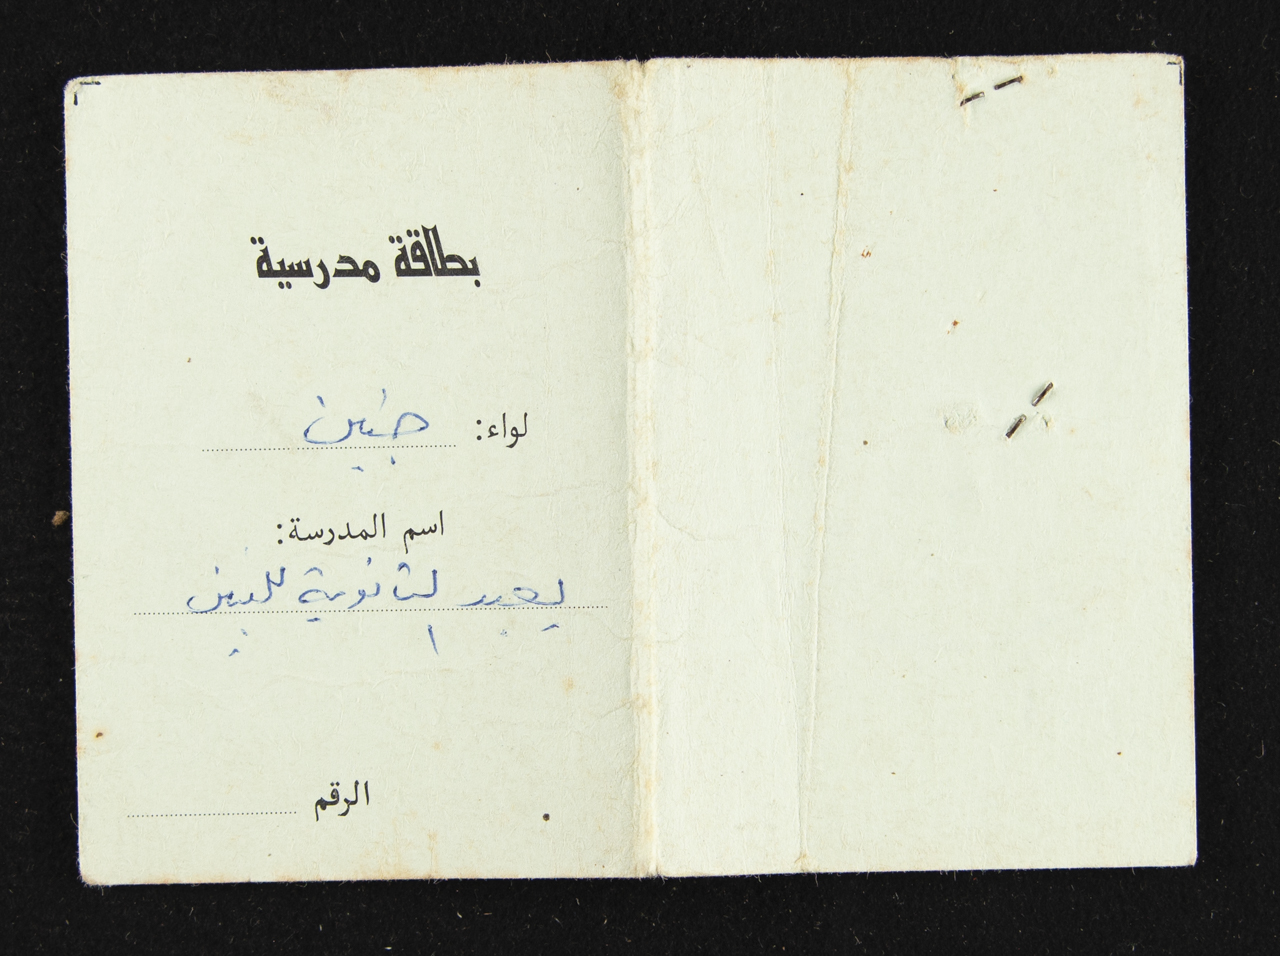 بطاقة مدرسية
لواء: جنين
اسم المدرسة:
يعبد الثانوية للبنين
الرقم